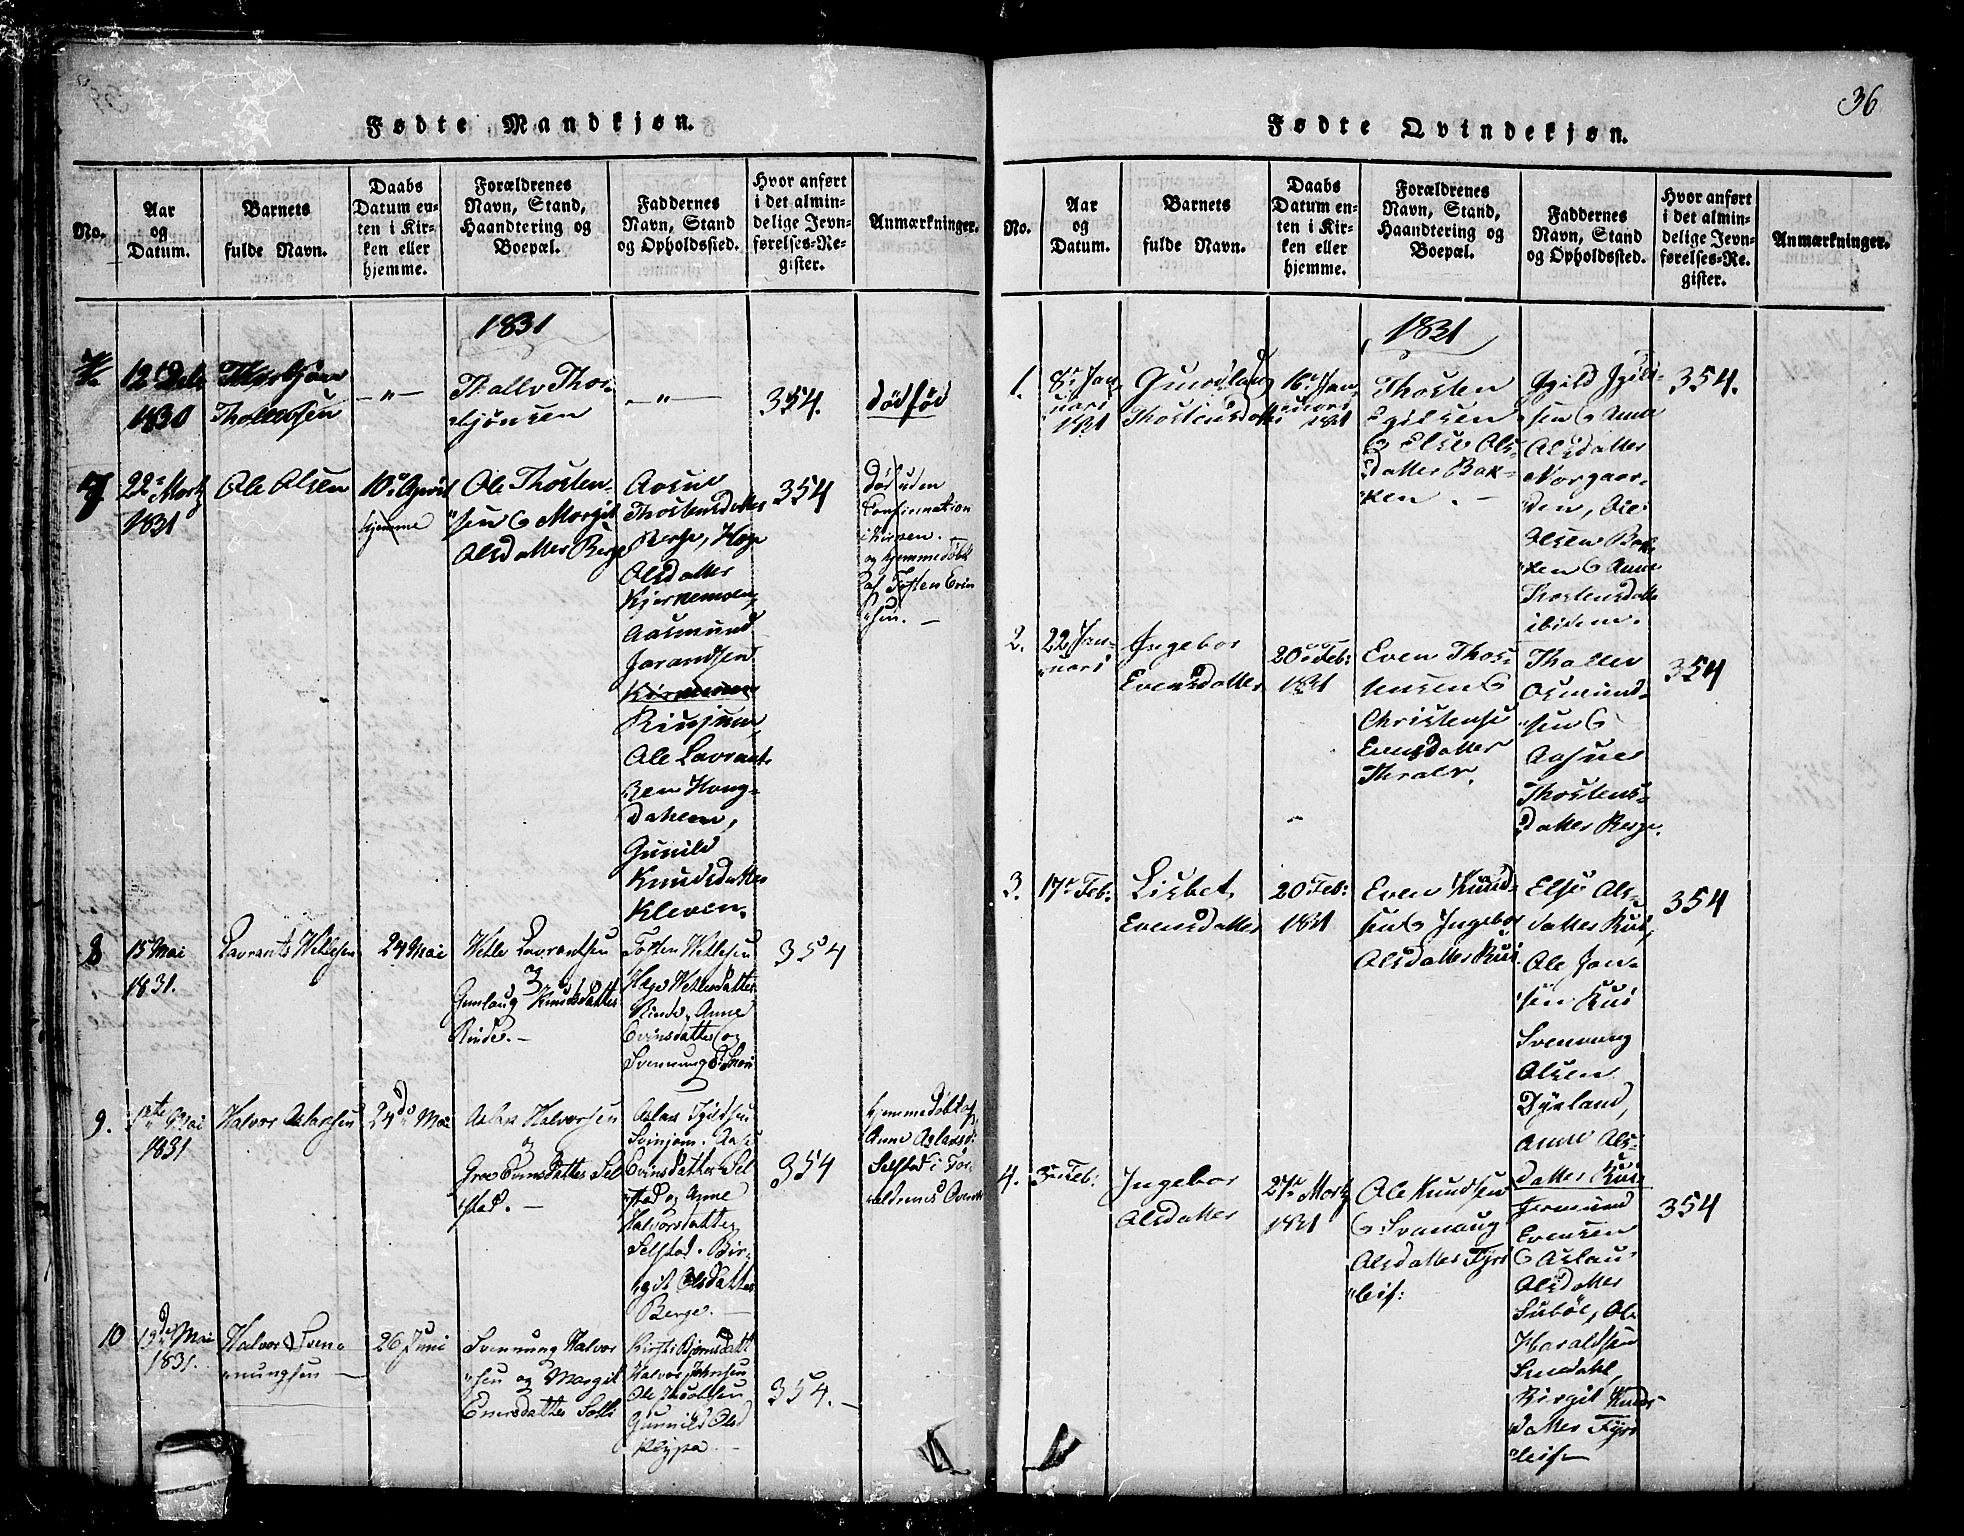 36
Fødte Mandkjøn.
No.
Aar
og
Datum.
Barnets
fulde Navn.
Daabs
Datum en-
ten i Kir-
ken eller
hjemme.
Forældrenes
Navn, Stand,
Haandtering og
Boepæl.
Faddernes
Navn, Stand
og Opholdssted.
Hvor anført
i det almin-
delige Jevn-
førelses-Re-
gister.
Anmærkninger.
1831
12 Dec
1830
Thorbjøn
Thollevsen
—"—
Thallv Thor
bjønsen
—"—
354.
dødfød
7
22 Martz
1831
Ole Olsen
10 April
hjemme
Ole Thosten-
sen & Margit
Olsdatter Berge
Aasne
Thostensdatter
Berge, Hæge
Olsdatter
Kjernemoen,
Aasmund
Jarandsen
Rinjum
Ole Lavrant-
sen Houg-
dalen,
Gunild
Knudsdatter
Kleven.
354
Død uden
Confirmation
i Kirken.
og hjemmedøbt
af Tosten Evin
sen.
8
15 Mai
1831.
Lavrants Vetlesen
24 Mai
Vetle Lavrantsen
og
Gunlaug Knudsdatter
Rinde.
Tosten Vetlesen
Hæge Vetlesdatter
Rinde, Anne
Evinsdatter og
Svennung
354
9.
Mai
1831
Halvor Aslaksen
24 Mai
Aslak Halvorsen
og
Groe Evensdatter Sel
stad.
Aslak
Evinsdatter Sel
stad og Anne
Halvorsdatter
Selstad. Bir-
git Olsdatter
Berge.
354
hjemmedøbt af
Anne Aslaksd:
Selstad i For
ældrenes
10
19 Mai
1831.
Halvor Sven
nungsen
26 Juni
Svennung Halvor
sen og Margit
Evensdatter
Kirsti Bjørnsdatt
Halvor Johnsen
Ole Jacobsen
Gunnild Olsd
354.
Fødte Qvindekjøn.
No.
Aar
og
Datum.
Barnets
fulde Navn.
Daabs
Datum en-
ten i Kir-
ken eller
hjemme.
Forældrenes
Navn, Stand,
Haandtering og
Boepæl.
Faddernes
Navn, Stand
og Opholdssted.
Hvor anført
i det almin-
delige Jevn-
førelses-Re-
gister.
Anmærkninger.
1831
1.
8 Jan
uari
1831
Gundlaug
Thostensdatter
16 Jan
uari
1831
Thosten
Egilsen
& Else Ols-
datter Bak-
ken.
sen & Anne
Olsdatter
Norgaar-
den, Ole
Olsen Bak
ken & Anne
Thostensdatter
ibidem.
354.
2.
22 Jan-
uari
Ingebor
Evensdatter
20 Feb:
1831
Even Thos-
tensen &
Christense
Evensdatter
Thallev
Osmund-
sen &
Aasne
Thostens-
datter Berge.
354
3.
17 Feb:
Lisbet
Evensdatter
20 Feb:
1831
Even Knud-
sen & Ingebor
Olsdatter Rui
Else Ols-
datter Rui,
Ole Jan-
sen Rui
Svennung
Olsen
Dyrland,
Anne Ols-
datter Rui
354
4.
Feb:
Ingebor
Olsdatter
27 Martz
1831
Ole Knudsen
& Svanaug
Olsdatter Fyri
leif:
Jermund
Evensen
& Aslau
Olsdatter
Subøl, Ol
Haraldsen
Birgit Knuds-
datter Fyri
leif
354